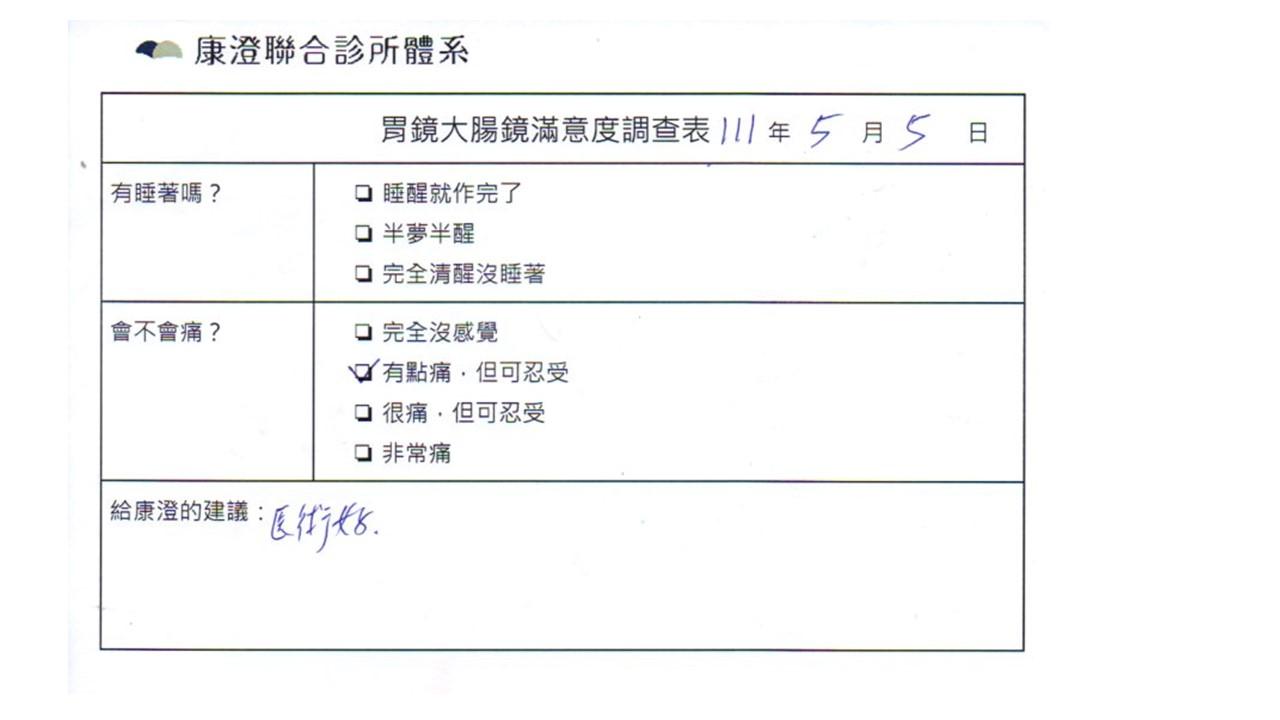 康澄聯合診所體系
胃鏡大腸鏡滿意度調查表 111 年 5 月 5 日
有睡著嗎？
❏ 睡醒就作完了
❏ 半夢半醒
❏ 完全清醒沒睡著
會不會痛？
❏ 完全沒感覺
☑ 有點痛，但可忍受
❏ 很痛，但可忍受
❏ 非常痛
給康澄的建議：医術好.